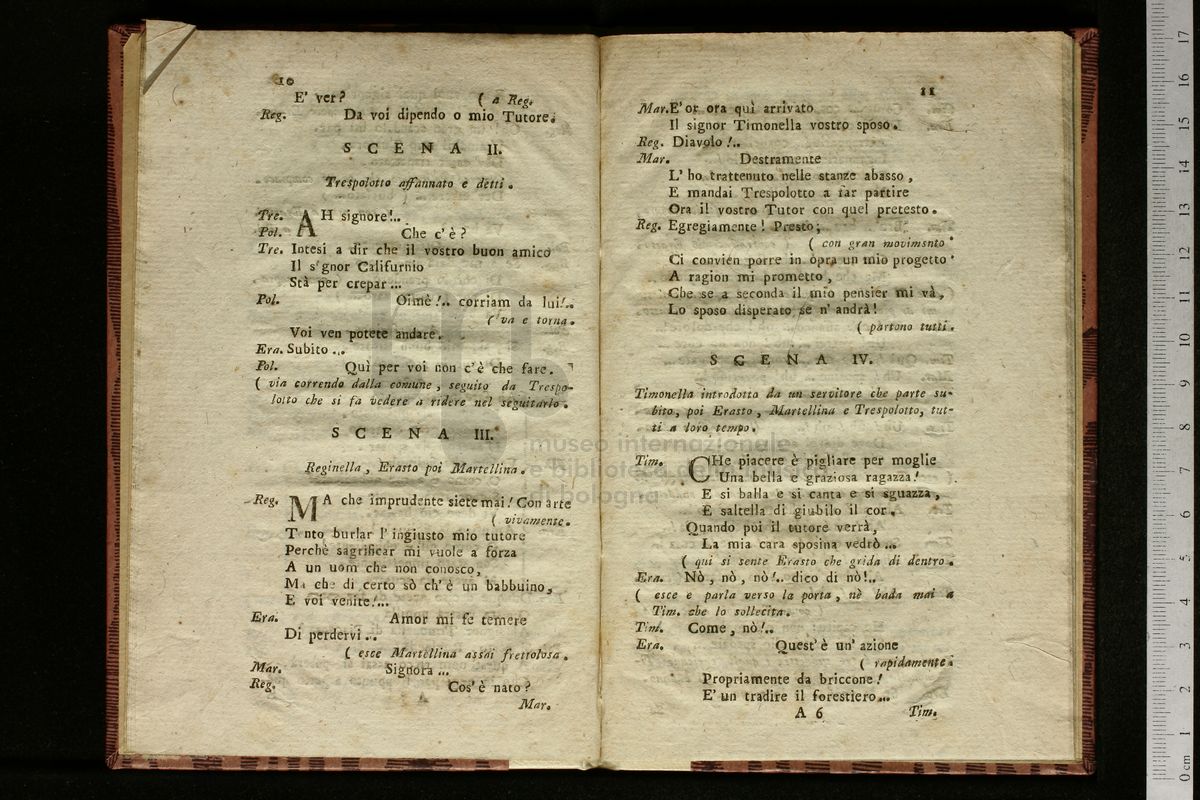 10
E' ver? ( a Reg.
Reg. Da voi dipendo o mio Tutore.
SCENA II.
Trespolotto affannato e detti.
Tre. AH signore!..
Pol. Che c'è?
Tre. Intesi a dir che il vostro buon amico
Il s'gnor Califurnio
Stà per crepar...
Pol. Oimè!.. corriam da lui!..
( va e torna.
Voi ven potete andare.
Era. Subito ...
Pol. Quì per voi non c'è che fare.
( via correndo dalla comune, seguito da Trespo-
lotto che si fa vedere a ridere nel seguitarlo.
SCENA III.
Reginella, Erasto poi Martellina.
Reg. MA che imprudente siete mai! Con arte
( vivamente.
T nto burlar l'ingiusto mio tutore
Perchè sagrificar mi vuole a forza
A un uom che non conosco,
Ma che di certo sò ch'è un babbuino,
E voi venite!...
Era. Amor mi fe temere
Di perdervi ..
( esce Martellina assai frettolosa.
Mar. Signora ...
Reg. Cos'è nato?
Mar.
11
Mar. E' or ora quì arrivato
Il signor Timonella vostro sposo.
Reg. Diavolo!..
Mar. Destramente
L'ho trattenuto nelle stanze abasso,
E mandai Trespolotto a far partire
Ora il vostro Tutor con quel pretesto.
Reg. Egregiamente! Presto;
( con gran movimsnto
Ci convien porre in opra un mio progetto
A ragion mi prometto,
Che se a seconda il mio pensier mi và,
Lo sposo disperato se n'andrà!
( partono tutti.
SCENA IV.
Timonella introdotto da un servitore che parte su-
bito, poi Erasto, Martellina e Trespolotto, tut-
ti a loro tempo.
Tim. CHe piacere è pigliare per moglie
Una bella e graziosa ragazza!
E si balla e si canta e si sguazza,
E saltella di giubilo il cor.
Quando poi il tutore verrà,
La mia cara sposina vedrò ...
( qui si sente Erasto che grida di dentro.
Era. Nò, nò, nò!.. dico di nò!..
( esce e parla verso la porta, nè bada mai a
Tim. che lo sollecita.
Tim. Come, nò!..
Era. Quest'è un' azione
( rapidamente.
Propriamente da briccone!
E' un tradire il forestiero...
A 6 Tim.
museo internazionale
e biblioteca della musica
di bologna
0 cm 1 2 3 4 5 6 7 8 9 10 11 12 13 14 15 16 17